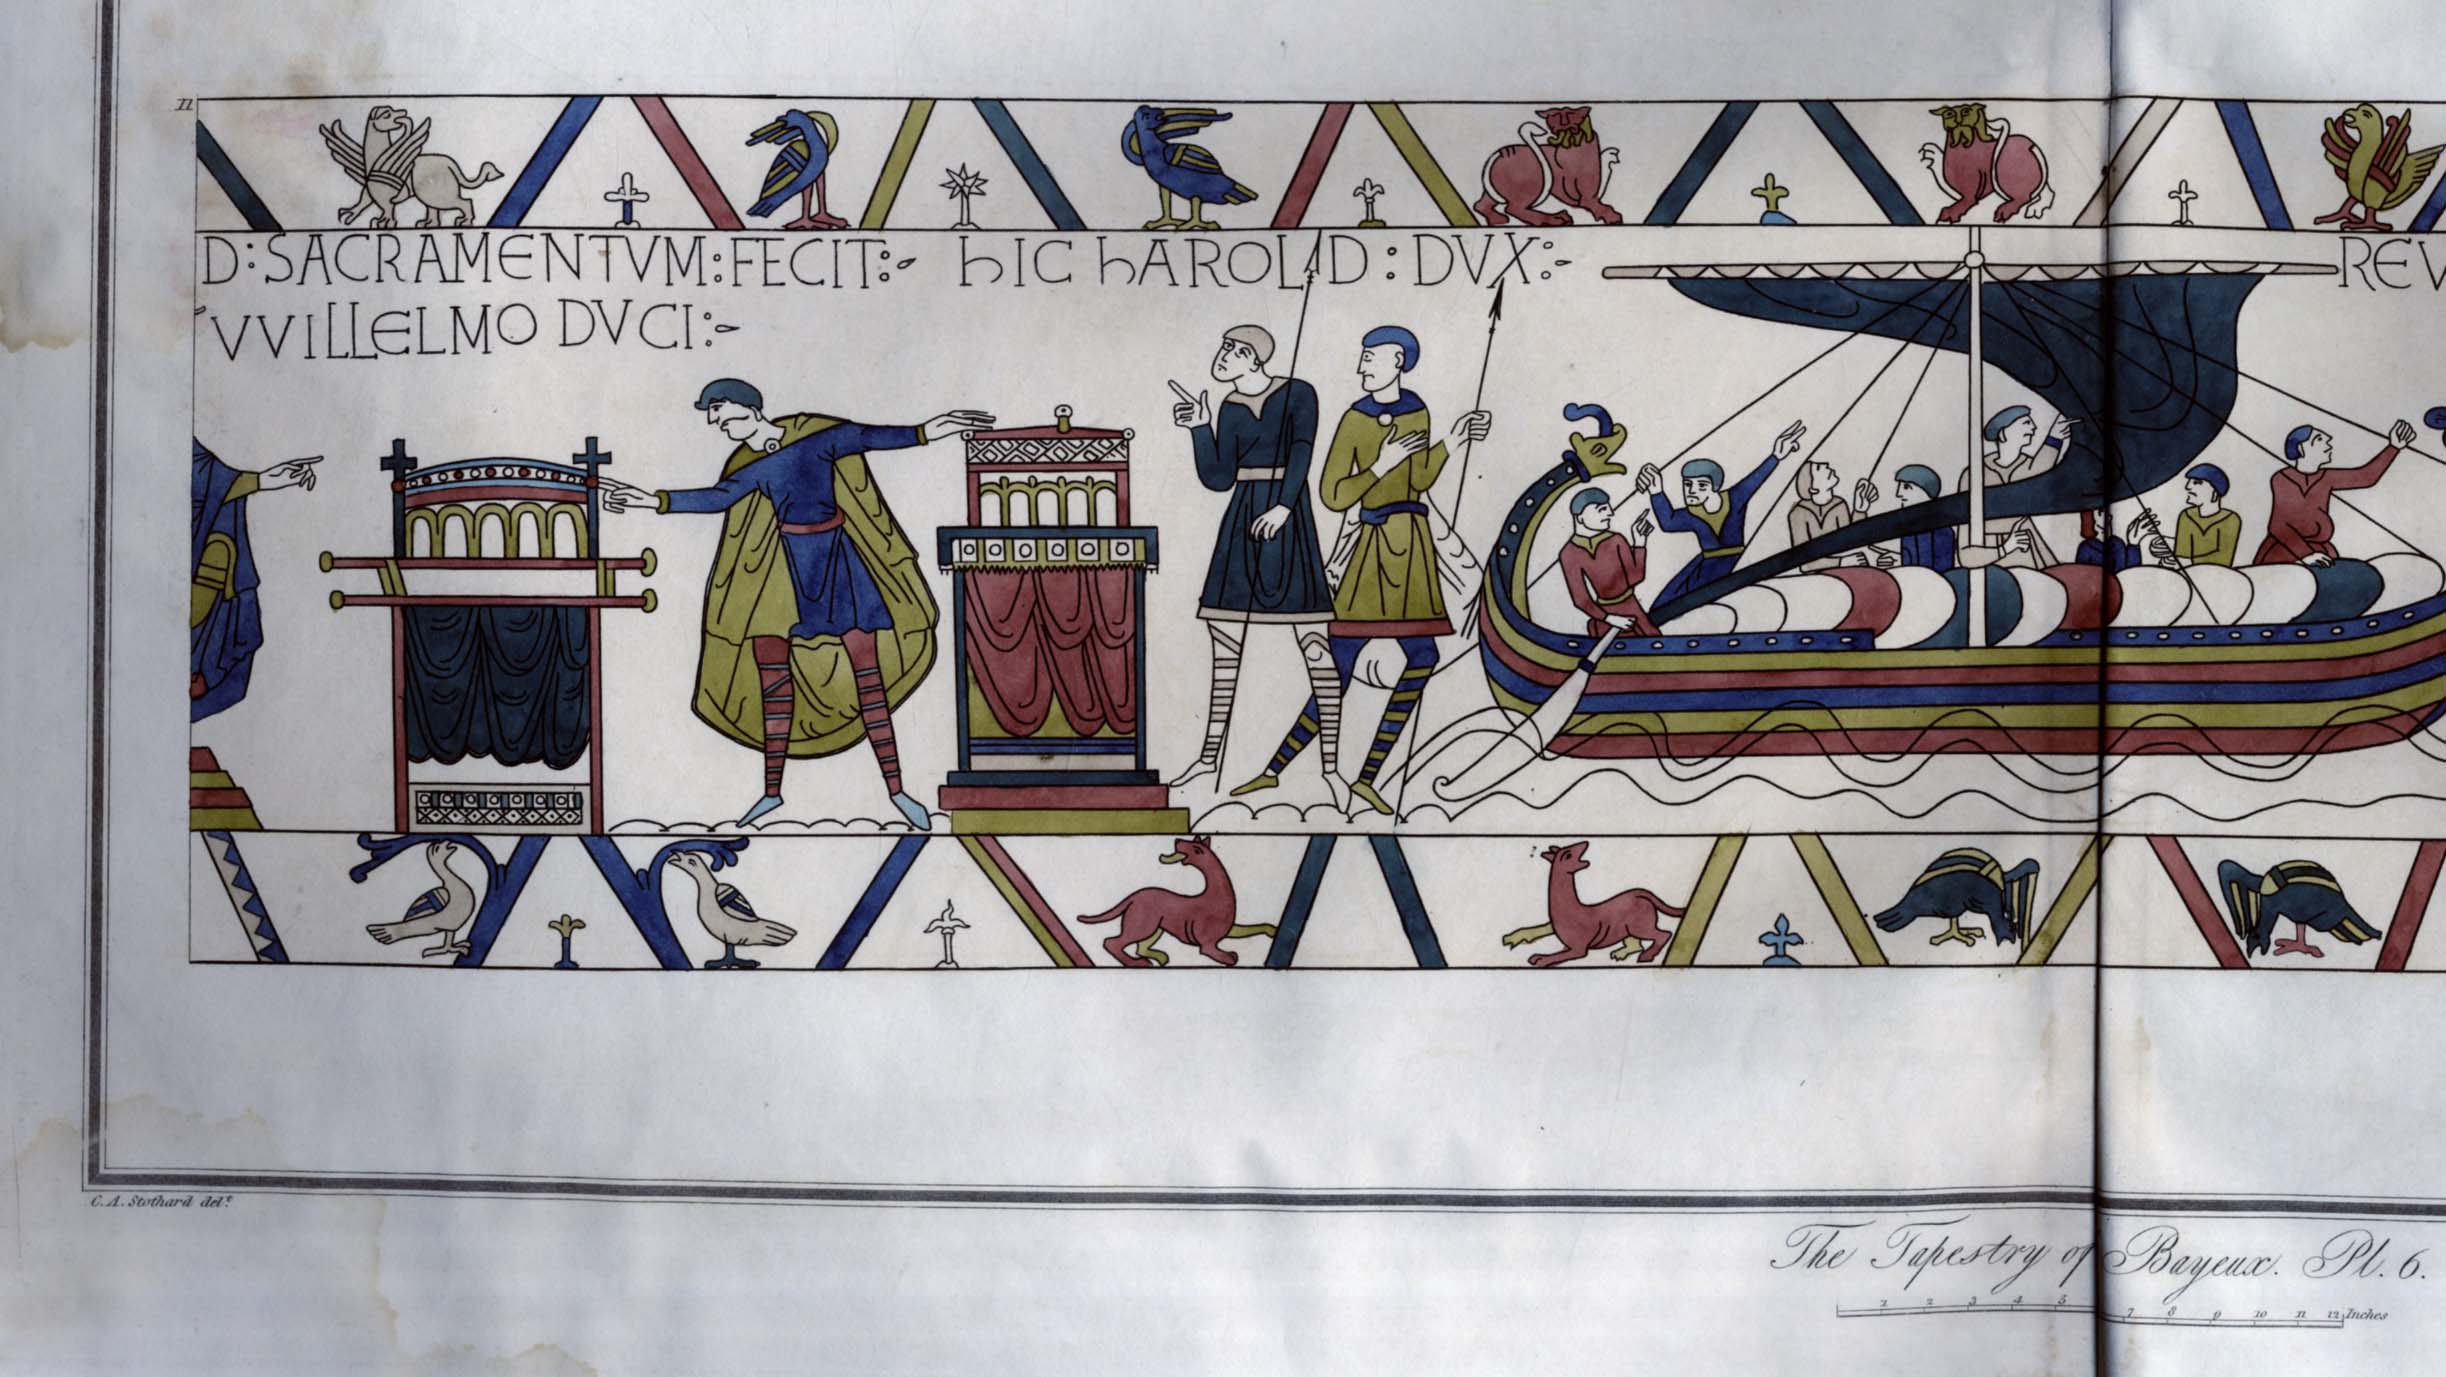 II
D : SACRAMENTVM : FECIT :- hIC hAROLD : DVX :- REV
VVILLELMO DVCI :-
C. A. Stothard delt.
The Tapestry of Bayeux. Pl. 6.
1 2 3 4 5 7 8 9 10 11 12 Inches